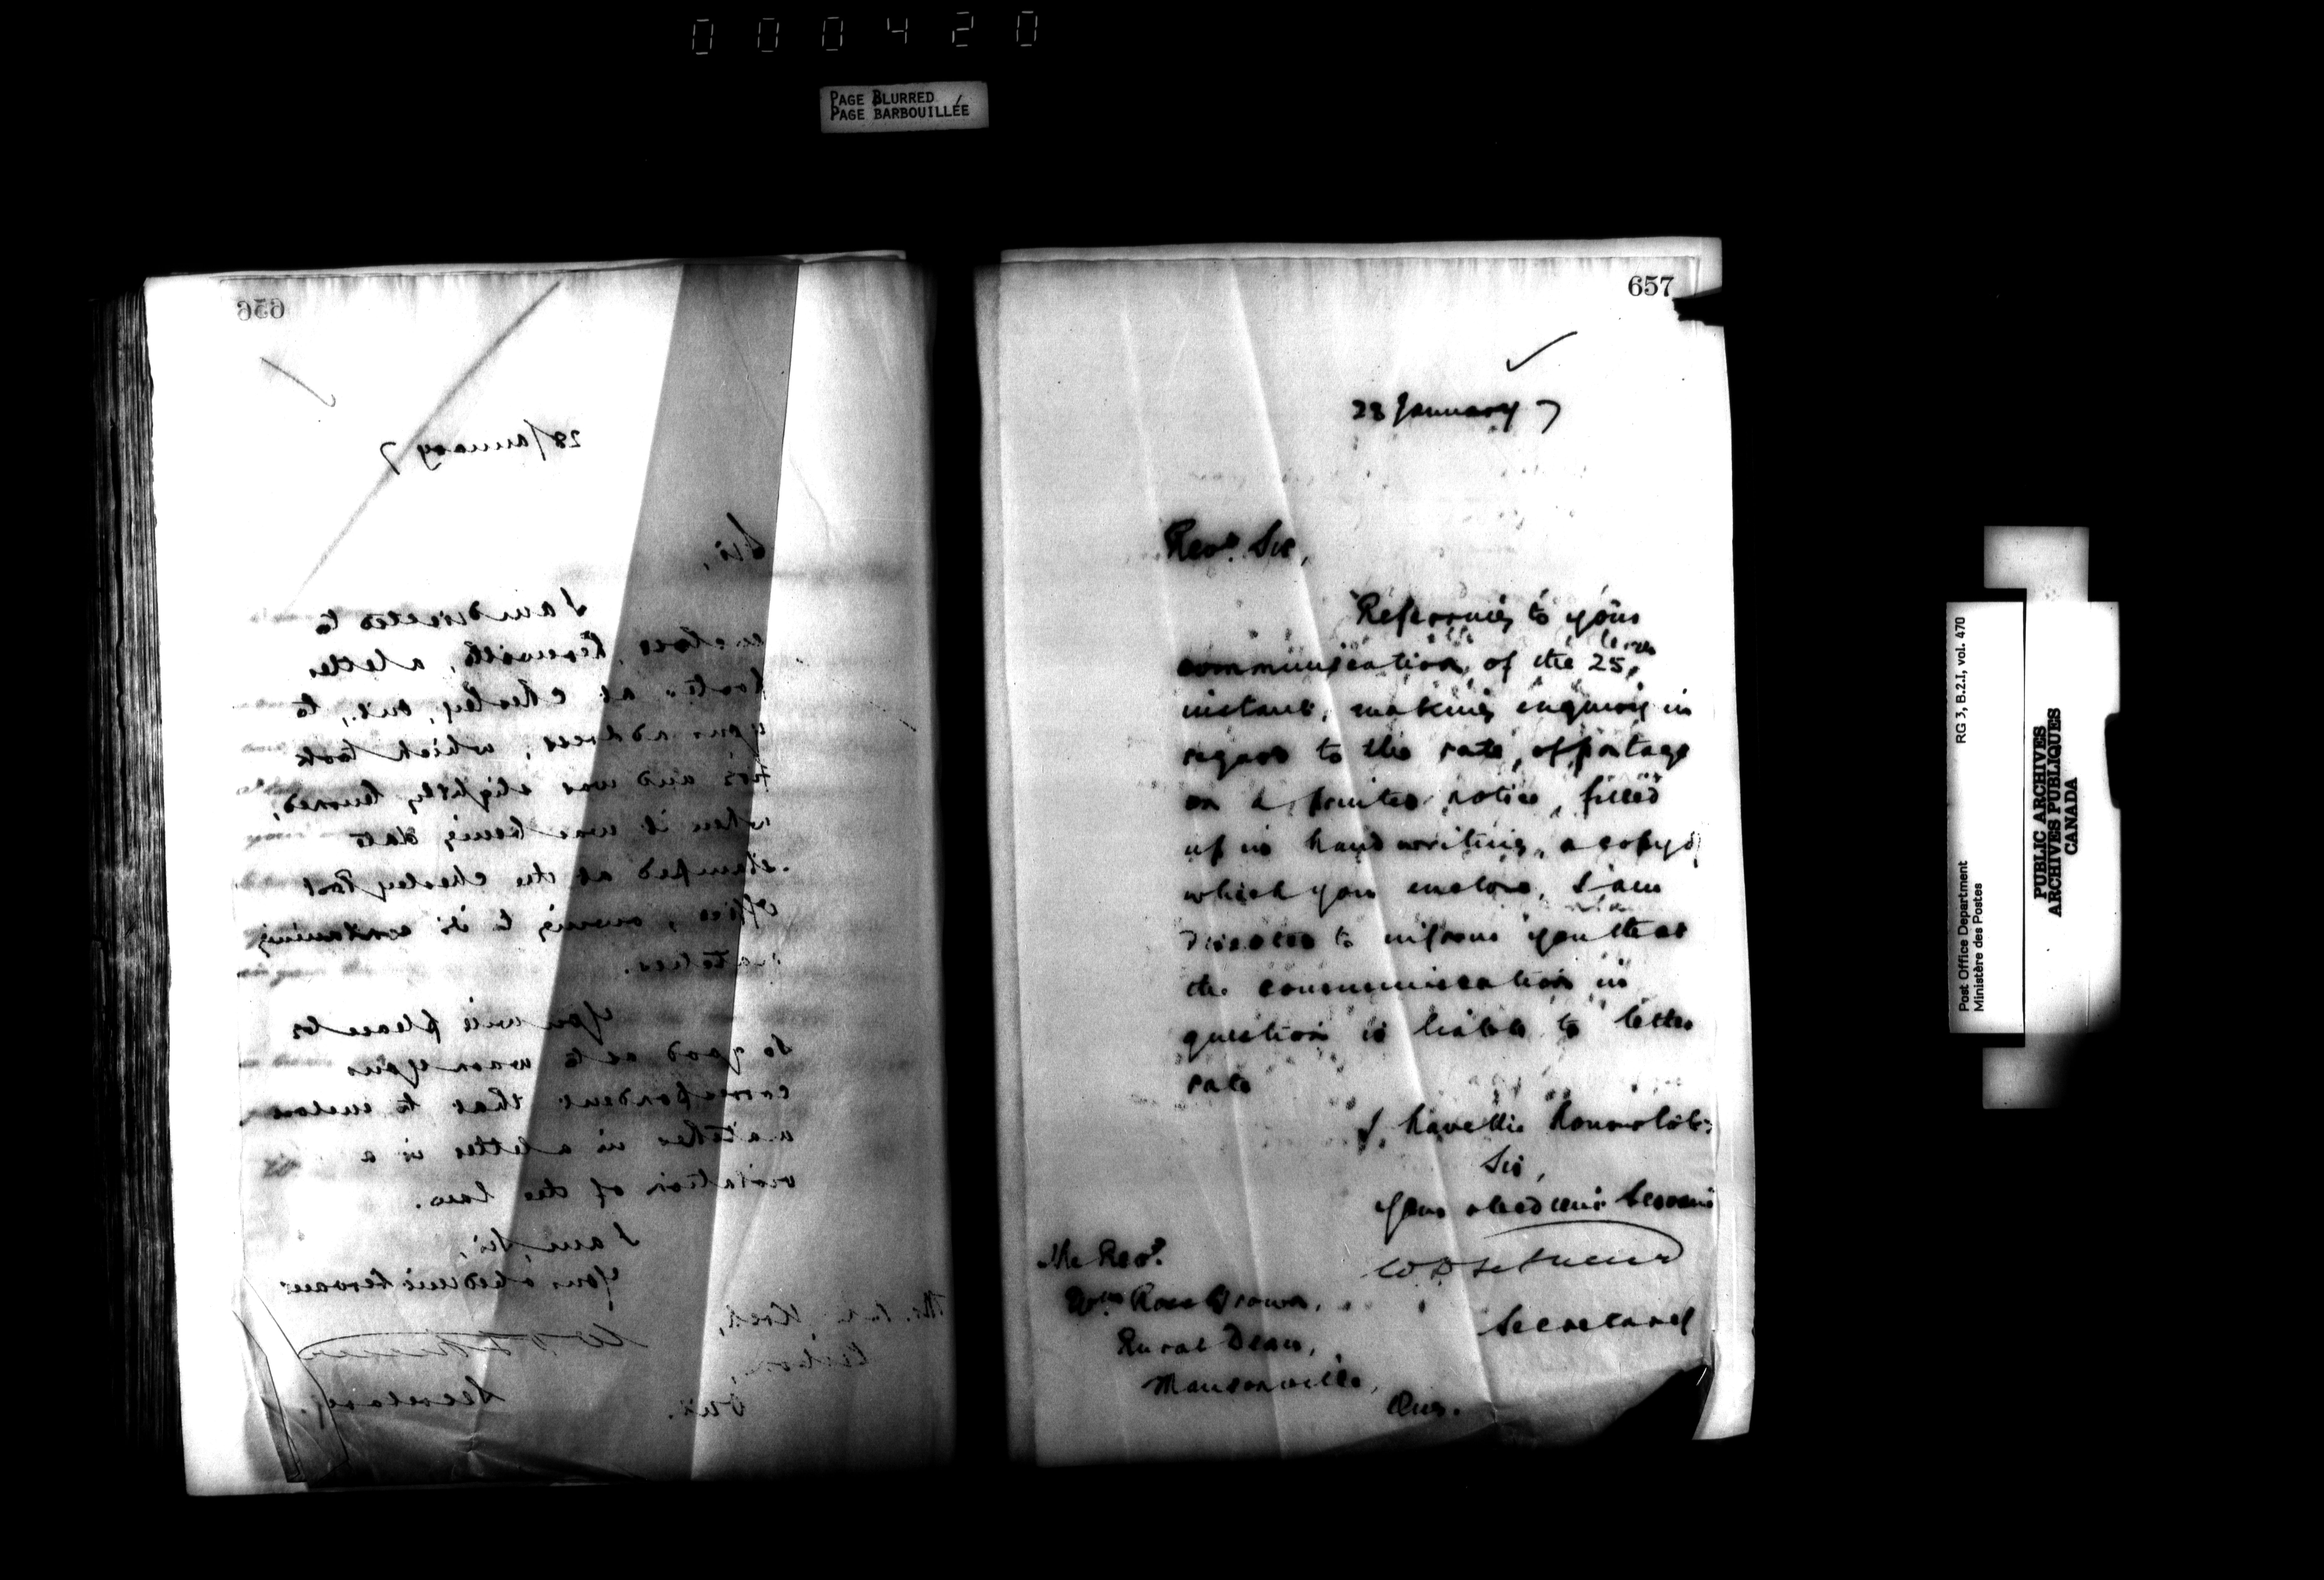 000420
PAGE BLURRED
PAGE BARBOUILLÉE
656
28 January 7
Sir,
I am directed to
enclose, herewith, a letter
posted at Chesley, Ont., to
your address, which took
fire and was slightly burned,
when it was being date
stamped at the Chesley Post
Office, owing to its containing
matches.
You will please be
so good as to warn your
correspondent that to enclose
matches in a letter is a
violation of the law.
I am, Sir,
Your obedient Servant
Secretary.
Ont.
657
28 January 7
Revd. Sir,
Referring to your
communication of the 25
instant, making enquiry in
regard to the rate of postage
on a printed notice, filled
up in hand writing, a copy of
which you enclose, I am
directed to inform you that
the communication in
question is liable to letter
rate
I have the honour to be
Sir,
Your obedient Servant
W D LeSueur
Secretary
The Revd.
Wm Ross Brown,
Rural Dean,
Mansonville,
Que.
Post Office Department
Ministère des Postes
RG 3, B.2.I, vol. 470
PUBLIC ARCHIVES
ARCHIVES PUBLIQUES
CANADA